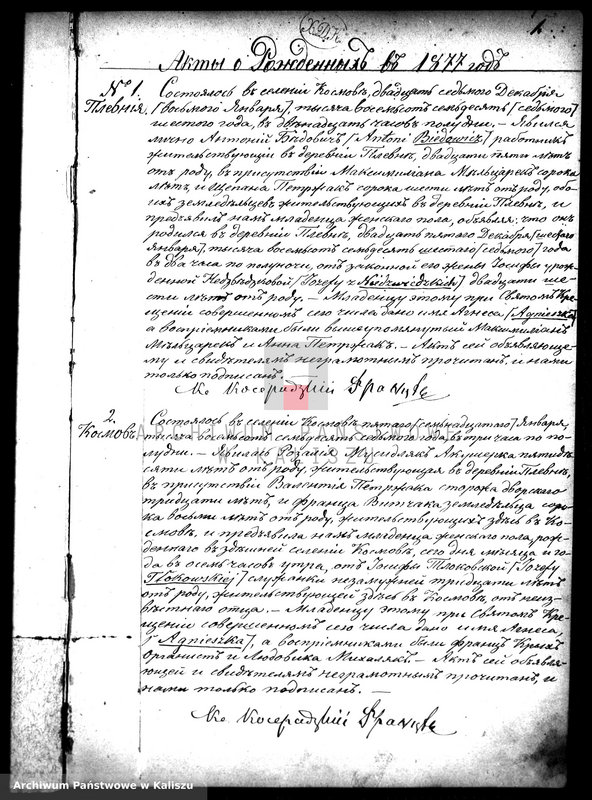 1
Акты о Рожденныхъ въ 1877 годъ
№ 1.
Плевнія.
Состоялось въ селеніи Космовъ, двадцать седьмого Декабря
/восьмого Января/, тысяча восемьсотъ семьдесятъ /седьмого/
шестого года, въ двѣнадцать часовъ полудни. — Явился
лично Антоній Бѣдовичъ /Antoni Biedowicz/ работникъ
жительствующій въ деревни Плевнѣ, двадцати пяти лѣтъ
отъ роду, въ присутствіи Максимиліана Мѣльцарекъ сорока
лѣтъ, и Щепана Петржакъ сорока шести лѣтъ отъ роду, обо-
ихъ земледѣльцевъ жительствующихъ въ деревни Плевнѣ, и
предъявилъ намъ младенца женскаго пола, объявляя: что онъ
родился въ деревни Плевнѣ, двадцать пятого Декабря /шестого
Января/, тысяча восемьсотъ семьдесятъ шестого /седьмого/ года
въ два часа по полуночи, отъ законной его жены Іосифы урож-
денной /Józefy z Niedzwiedzkich/ двадцати ше-
сти лѣтъ отъ роду. — Младенцу этому при Святомъ Кре-
щеніи совершенномъ сего числа дано имя Агнеса, /Agnieszka/
а воспріемниками были вышеупомянутый Максимиліанъ
Мѣльцарекъ и Анна Петржакъ. — Актъ сей объявляюще-
му и свидѣтелямъ неграмотнымъ прочитанъ, и нами
только подписанъ. —
Кс Косерадзкій Францъ
2.
Космовъ
Состоялось въ селеніи Космовъ пятаго /семьнадцатаго/ Января,
тысяча восемьсотъ семьдесятъ седьмого года, въ три часа по по-
лудни. — Явилась Розалія Мусидлякъ Акушерка пятиде-
сяти лѣтъ отъ роду, жительствующая въ деревни Плевнѣ,
въ присутствіи Валентія Петржака сторожа дворскаго
тридцати лѣтъ, и Франца Витчака земледѣльца соро-
ка восьми лѣтъ отъ роду, жительствующихъ здѣсь въ Ко-
смовѣ, и предъявила намъ младенца женскаго пола, рож-
деннаго въ здѣшней селеніи Космовъ, сего дня мѣсяца и го-
да въ осемь часовъ утра, отъ Іосифы Тлоковской /Józefy
Tlokowskiej/ служанки незамужней тридцати лѣтъ
отъ роду, жительствующей здѣсь въ Космовѣ, отъ неиз-
вѣстнаго отца. — Младенцу этому при Святомъ Кре-
щеніи совершенномъ сего числа дано имя Агнеса,
/Agnieszka/, а воспріемниками были Францъ
органистъ и Людовика Михалякъ. — Актъ сей объявля-
ющей и свидѣтелямъ неграмотнымъ прочитанъ, и
нами только подписанъ. —
Кс Косерадзкій Францъ
ARCHIWUM PAŃSTWOWE
W KALISZU
Archiwum Państwowe w Kaliszu